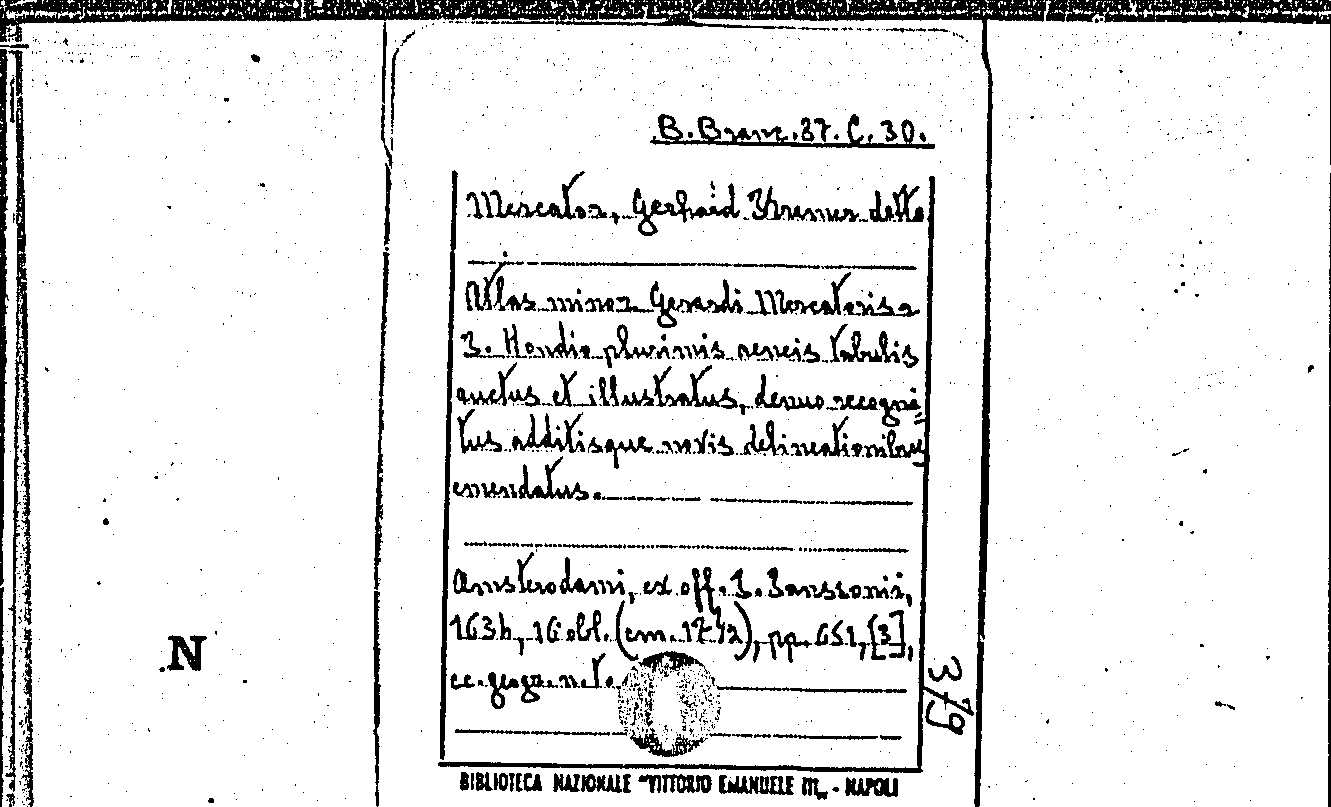 B. Branc. 37. C. 30.
Mercator, Gerhard Kremer detto
Atlas minor Gerardi Mercatoris a
J. Hondio plurimis aeneis tabulis
auctus et illustratus, denuo recogni
tus additisque novis delineationibus
emendatus.
Amsterodami, ex off. J. Janssonii,
1634, 16 obl. (cm. 17 ), pp. 651, [3],
cc. geogr. n. t.
379
N
BIBLIOTECA NAZIONALE "VITTORIO EMANUELE III„ - NAPOLI